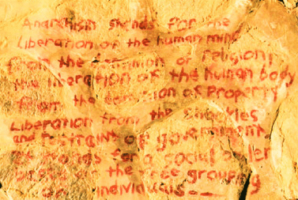 Anarchism stands for the
liberation of the human mind
from the dominion of religion;
the liberation of the human body
from the dominion of Property
Liberation from the Shackles
and restraint of government
It stands for a social order
based on the free grouping
of individuals